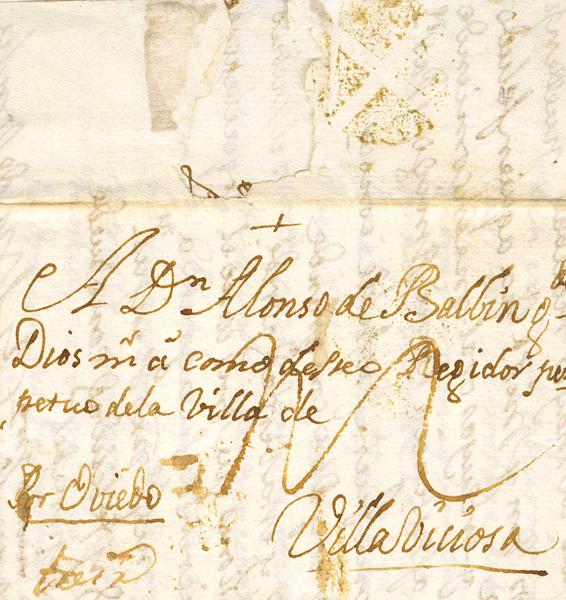 +
A Dn Alonso de Balbin q de
Dios m a como deseo Regidor per
petuo de la Villa de
Por Oviedo
Villaviciosa